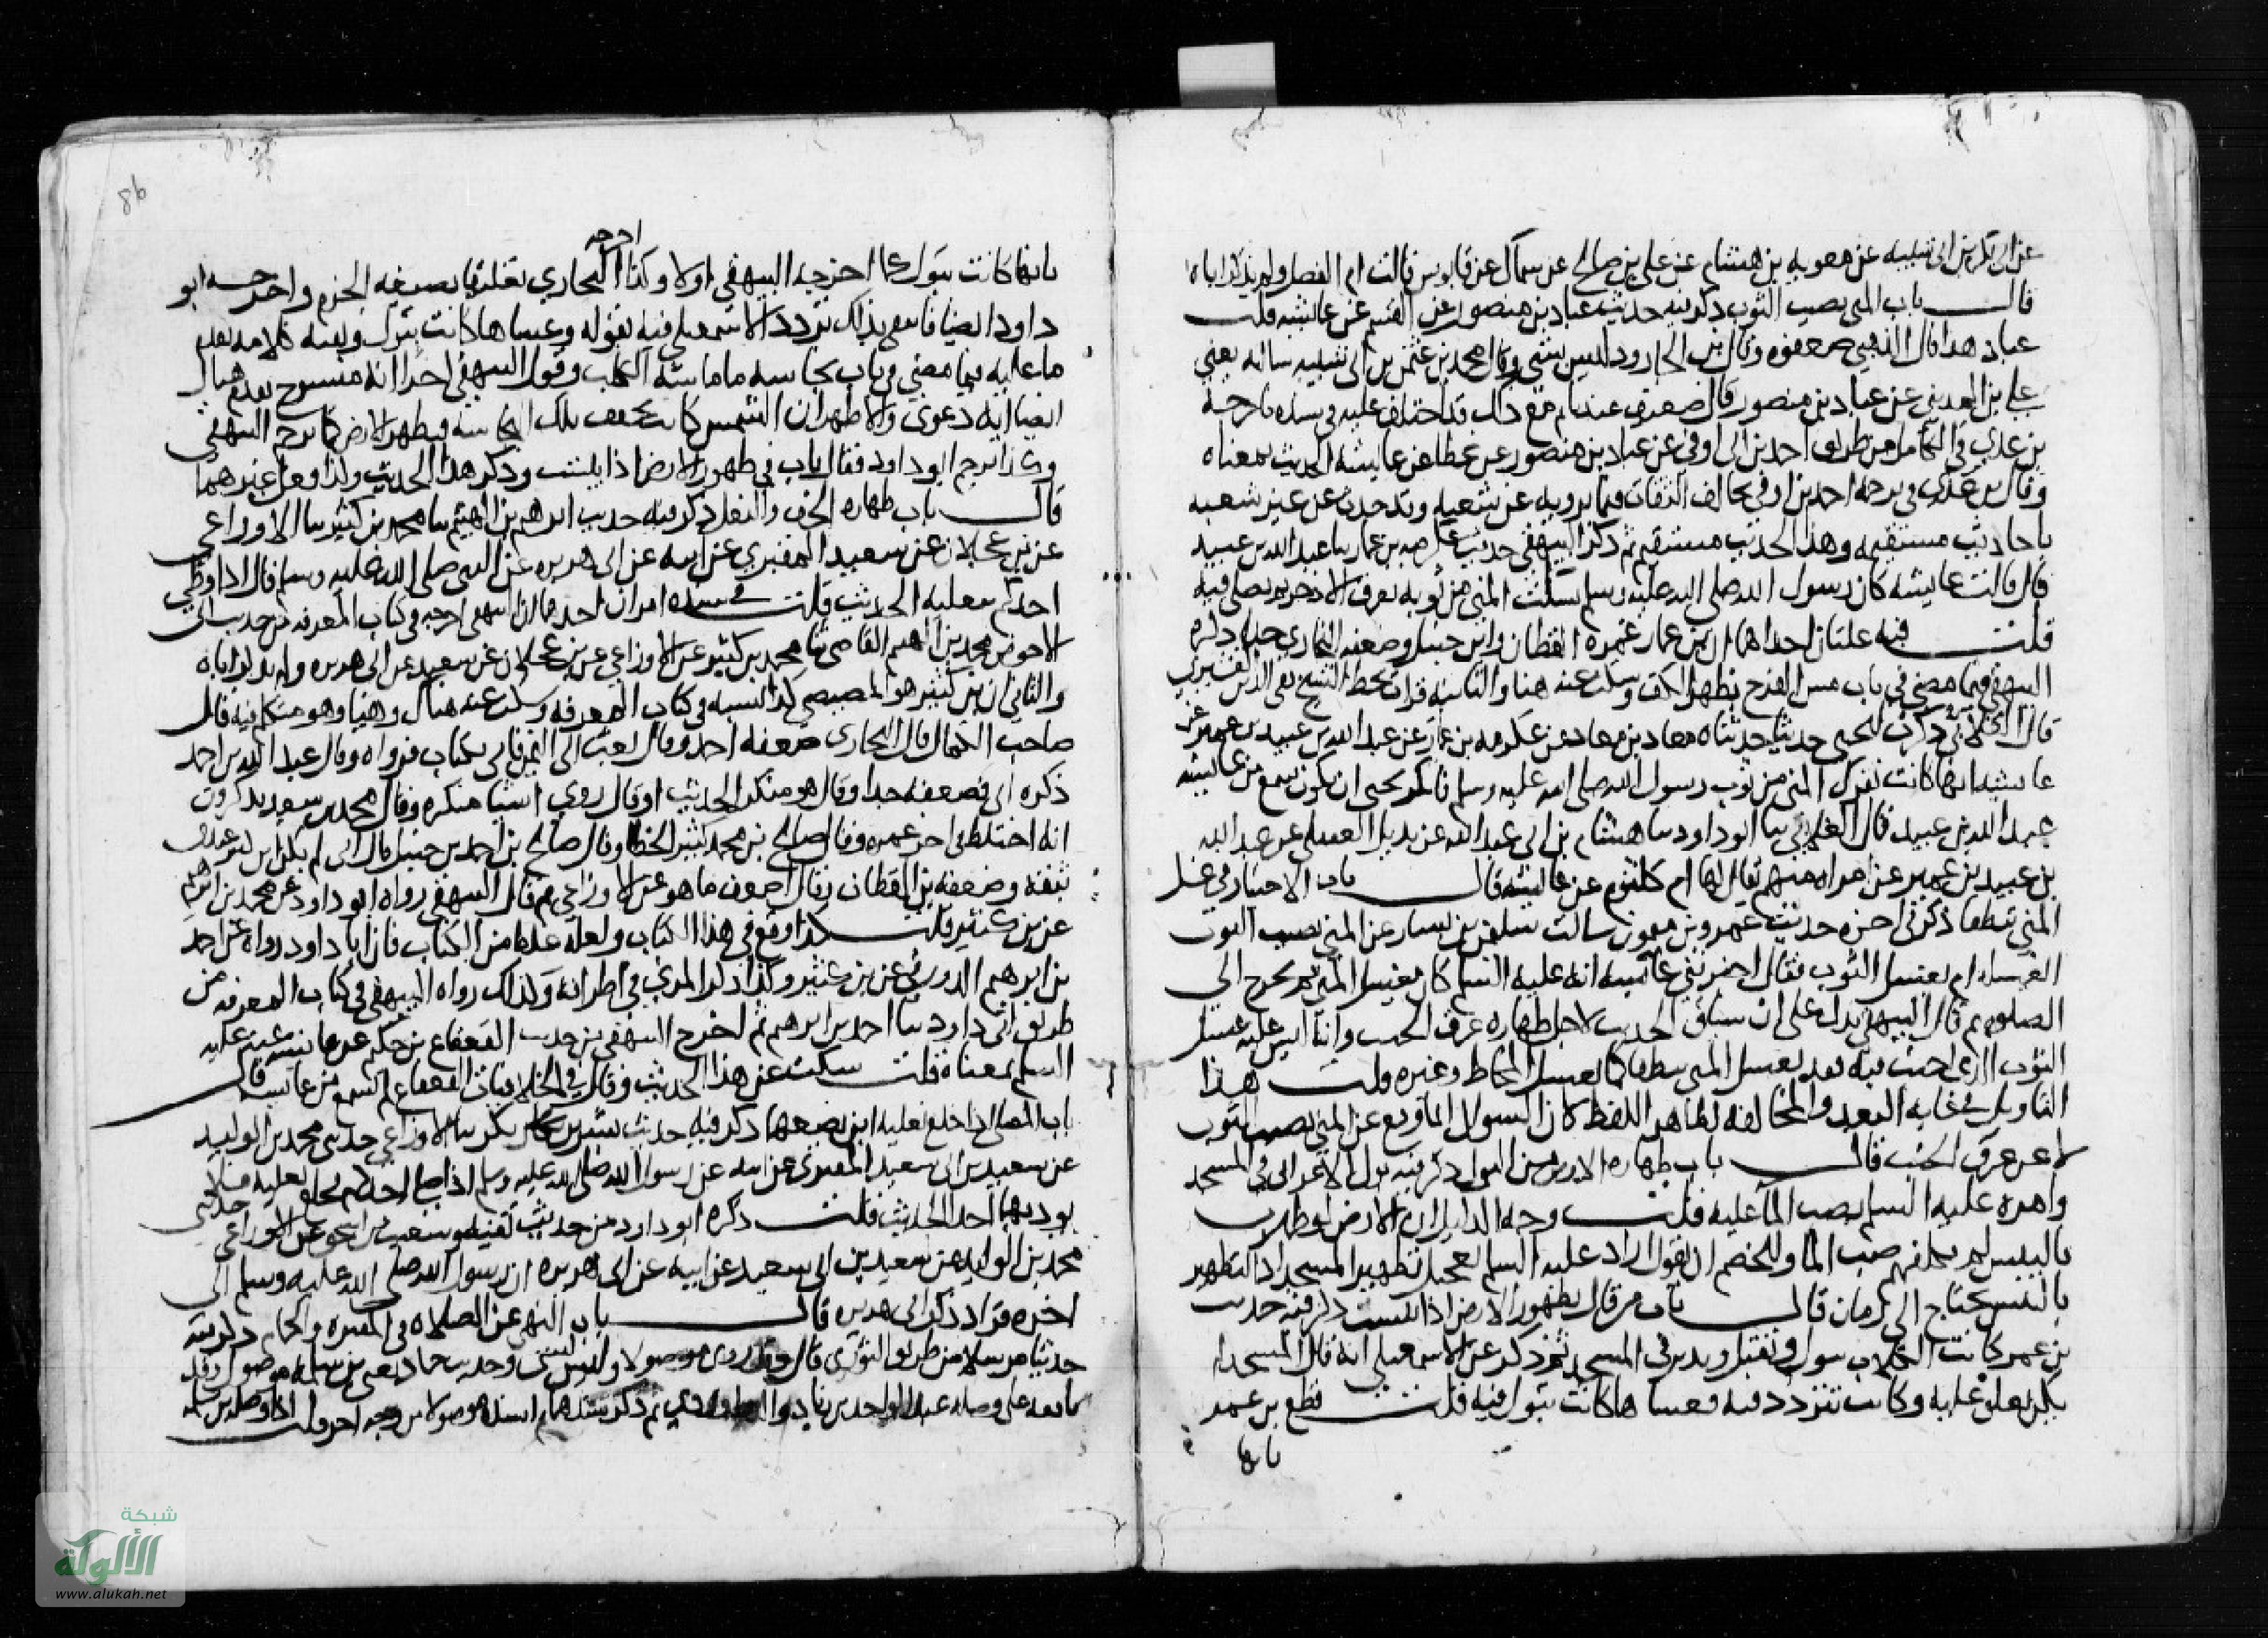 عن ابي بكر بن ابي شيبه عن معويه بن هشام عن علي بن صالح عن سماك عن قابوس قالت ام الفضل ولم يذكر اباه
قال باب المني يصيب الثوب ذكر فيه حديث عباد بن منصور عن القسم عن عائشه قلت
عباد هذا قال الذهبي ضعفوه وقال بن الجارود ليس بشي وقال محمد بن عثمن بن ابي شيبه سالته يعني
علي بن المديني عن عباد بن منصور فقال ضعيف عندنا ثم مع ذلك قد اختلف عليه في سنده فاخرجه
بن عدي في الكامل من طريق احمد بن ابي اوفى عن عباد بن منصور عن عطا عن عايشه الحديث بمعناه
وقال بن عدي في ترجمه احمد بن ابي اوفي يخالف الثقات فيما يرويه عن شعبه وقد حدث عن غير شعبه
باحاديث مستقيمه وهذا الحديث مستقيم ثم ذكر البيهقي حديث عكرمه بن عمار ثنا عبد الله بن عبيد
قال قالت عايشه كان رسول الله صلى الله عليه وسلم يسلت المني من ثوبه بعرق الاذخر ثم يصلي فيه
قلت فيه علتان احداهما ان بن عمار غمزه القطان وابن حنبل وضعفه البخاري جدا ذكره
البيهقي فيما مضى في باب مس الفرج بظهر الكف وسكت عنه هنا والثانيه قرات بخط الشيخ تقي الدين القشيري
قال الغلابي ذكرت ليحيى حديثا حدثناه معاذ بن معاذ عن عكرمه بن عمار عن عبد الله بن عبيد بن عمير عن
عايشه انها كانت تفرك المني من ثوب رسول الله صلى الله عليه وسلم فانكر يحيى ان يكون سمع من عايشه
عبد الله بن عبيد قال الغلابي ثنا ابو داود ثنا هشام بن ابي عبد الله عن بديل العقيلي عن عبد الله
بن عبيد بن عمير عن امراه منهم يقال لها ام كلثوم عن عائشه قال باب الاختيار في غسل
المني تنظفا ذكر في اخره حديث عمرو بن ميمون سالت سليمن بن يسار عن المني يصيب الثوب
ايغسله ام يغسل الثوب فقال اخبرتني عائشه انه عليه السلم كان يغسل المني ثم يخرج الى
الصلوه ثم قال البيهقي يدل على ان سياق الحديث لاجل طهاره عرق الجنب وانه ليس عليه غسل
الثوب الذي اجنب فيه فقد يغسل المني تنظفا كما يغسل المخاط وغيره قلت هذا
التاويل في غايه البعد والمخالفه لظاهر اللفظ كان السوال انما وقع عن المني يصيب الثوب
لا عن عرق الجنب قال باب طهاره الارض من البول ذكر فيه بول الاعرابي في المسجد
وامره عليه السلم بصب الما عليه قلت وجه الدليل ان الارض لو طهرت
باليبس لم يكلفهم صب الما وللخصم ان يقول اراد عليه السلم تعجيل تطهير المسجد اذ التطهير
باليبس يحتاج الى زمان قال باب من قال بطهور الارض اذا يبست ذكر فيه حديث
بن عمر كانت الكلاب تبول وتقبل وتدبر في المسجد ثم ذكر عن الاسمعيلي انه قال المسجد لم
يكن يغلق عليه وكانت تتردد فيه فعساها كانت تبول فيه قلت قطع بن عمر
بانها
86
بانها كانت تبول كما اخرجه البيهقي اولا وكذا اخرجه البخاري تعليقا بصيغه الجزم واخرجه ابو
داود ايضا فانتفى بذلك تردد الاسمعيلي فيه بقوله وعساها كانت تبول وبقيه كلامه تقدم
ما عليه فيما مضى في باب نجاسه ما ماسه الكلب وقول البيهقي اخرا انه منسوخ تقدم هناك
ايضا انه دعوى والاظهر ان الشمس كانت تجفف تلك النجاسه فيطهر الارض كما ترجم البيهقي
وكذا ترجم ابو داود فقال باب في طهور الارض اذا يبست وذكر هذا الحديث وكذا فعل غيرهما
قال باب طهاره الخف والنعل ذكر فيه حديث ابرهيم بن الهيثم ثنا محمد بن كثير ثنا الاوزاعي
عن بن عجلان عن سعيد المقبري عن ابيه عن ابي هريره عن النبي صلى الله عليه وسلم قال اذا وطي
احدكم بنعليه الحديث قلت في سنده امران احدهما ان البيهقي اخرجه في كتاب المعرفه من حديث ابي
الاحوص محمد بن الهيثم القاضي ثنا محمد بن كثير عن الاوزاعي عن بن عجلان عن سعيد عن ابي هريره ولم يذكر اباه
والثاني ان بن كثير هو المصيصي كذا نسبه في كتاب المعرفه وسكت عنه هناك وهنا وهو متكلم فيه قال
صاحب الكمال قال البخاري ضعفه احمد وقال بعث الى اليمن فاتي بكتاب فرواه وقال عبد الله بن احمد
ذكره ابي فضعفه جدا وقال هو منكر الحديث او قال روى اشيا منكره وقال محمد بن سعد يذكرون
انه اختلط في اخر عمره وقال صالح بن محمد كثير الخطا وقال صالح بن احمد بن حنبل قال ابي لم يكن ابن كثير عندي
ثقه وضعفه بن القطان وقال اضعف ما هو عن الاوزاعي ثم قال البيهقي رواه ابو داود عن محمد بن ابرهيم
عن بن كثير قلت كذا وقع في هذا الكتاب ولعله غلط من الكتاب فان ابا داود رواه عن احمد
بن ابرهيم الدورقي عن بن كثير وكذا ذكر المزي في اطرافه وكذلك رواه البيهقي في كتاب المعرفه من
طريق ابي داود ثنا احمد بن ابرهيم ثم اخرج البيهقي من حديث القعقاع بن حكيم عن عائشه عنه عليه
السلم بمعناه قلت سكت عن هذا الحديث وقال في الخلافيات القعقاع لم يسمع من عائشه قال
باب المصلي اذا خلع نعليه اين يضعهما ذكر فيه حديث بشر بن بكر ثنا الاوزاعي حدثني محمد بن الوليد
عن سعيد بن ابي سعيد المقبري عن ابيه عن رسول الله صلى الله عليه وسلم اذا صلى احدكم فخلع نعليه فلا
يوذ بهما احدا الحديث قلت ذكره ابو داود من حديث بقيه وشعيب بن اسحق عن الاوزاعي حدثني
محمد بن الوليد عن سعيد بن ابي سعيد عن ابيه عن ابي هريره ان رسول الله صلى الله عليه وسلم الى
اخره فزاد ذكر ابي هريره قال باب النهي عن الصلاه في المقبره والحمام ذكر فيه
حديثا مرسلا من طريق الثوري قال وقد روى موصولا وليس بشي وحديث حماد يعني بن سلمه موصول وقد
تابعه على وصله عبد الواحد بن زياد والدراوردي ثم ذكر سندهما ثم اسنده موصولا من وجه اخر قلت اذا وصله بن سلمه
شبكة
الألوكة
www.alukah.net